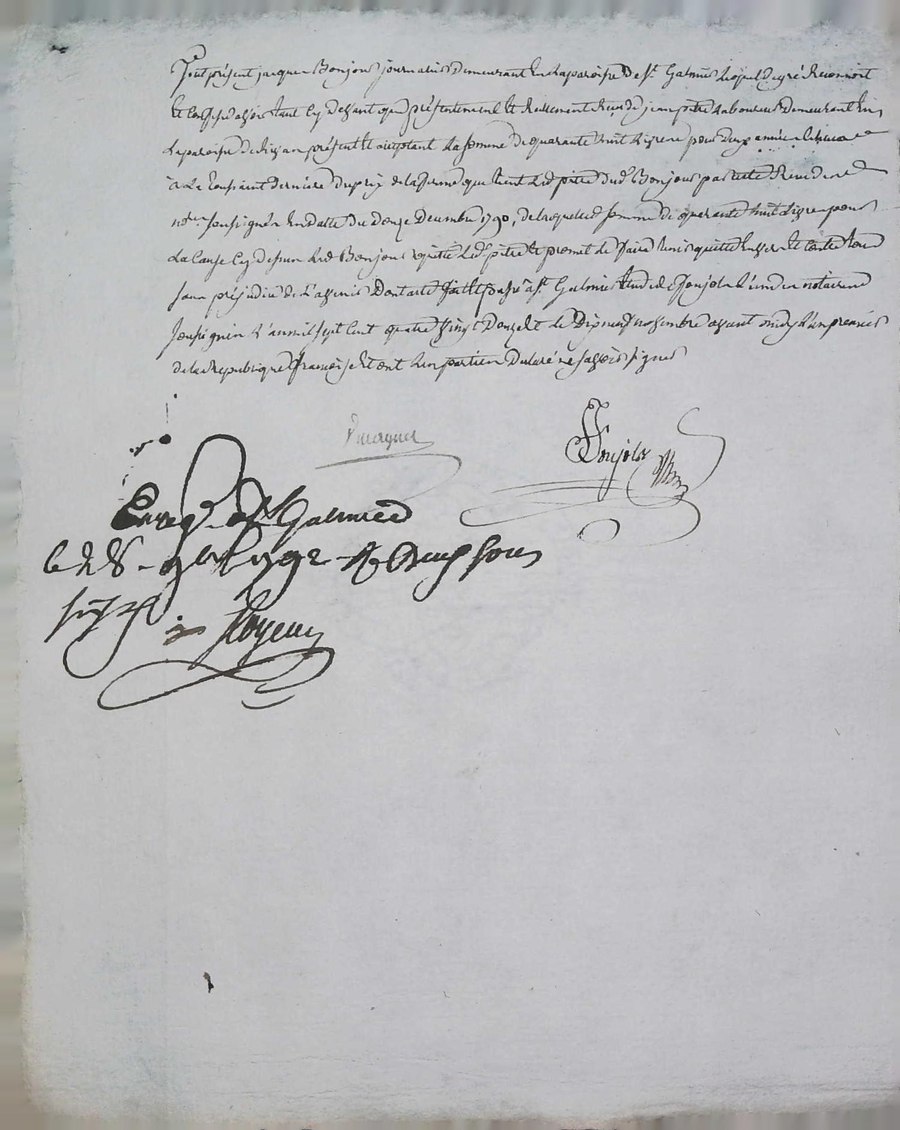 fut présent jacques Bonjour journalier demeurant En La paroisse De St. Galmier Lequel de gré Reconnoit
Et Confesse avoir tant Cy devant que présentement Et Reellement Reçu de jean pitre Laboureur demeurant En
La paroisse de présent Et acceptant La somme de quarante huit Livres pour deux années
à La toussaint derniere du prix de la ferme que tient Led pitre dud Bonjour par acte Reçu de
nore soussigné En datte du Douze Decembre 1790, de laquelle somme de quarante huit Livres pour
La Cause Cy dessus Led Bonjour quitte Led pitre Et promet le faire tenir quitte Envers Et Contre tous
sans préjudice de L'avenir Dont acte fait Et passé à St. Galmier Etude de Poujol L'un des notaires
soussignés L'an mil sept Cent quatre vingt Douze Et le Dix neuf novembre avant midy L'an premier
de la Republique françoise Et ont Les parties Declaré ne savoir signer
Poujol
Enreg. à St Galmier
le 28 9bre 1792 Rç sous